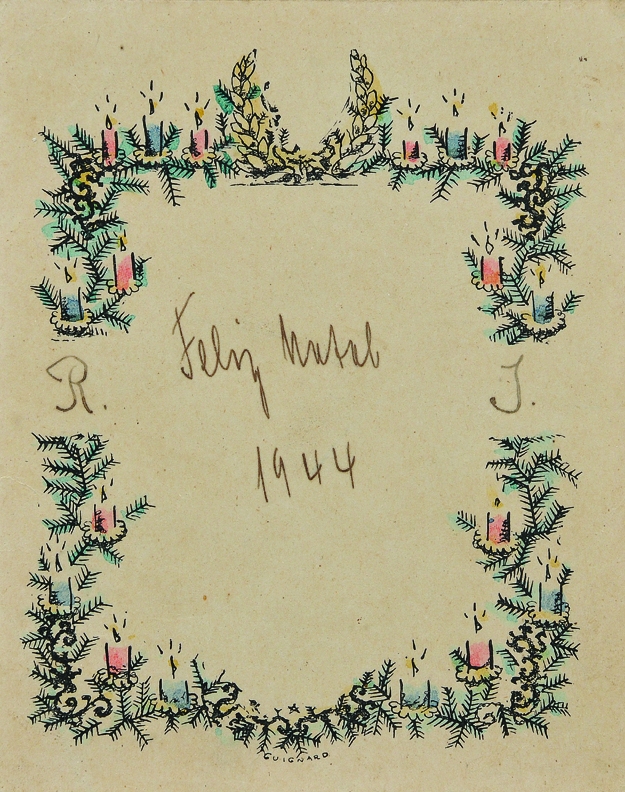 Feliz Natal
R. J.
1944
GUIGNARD